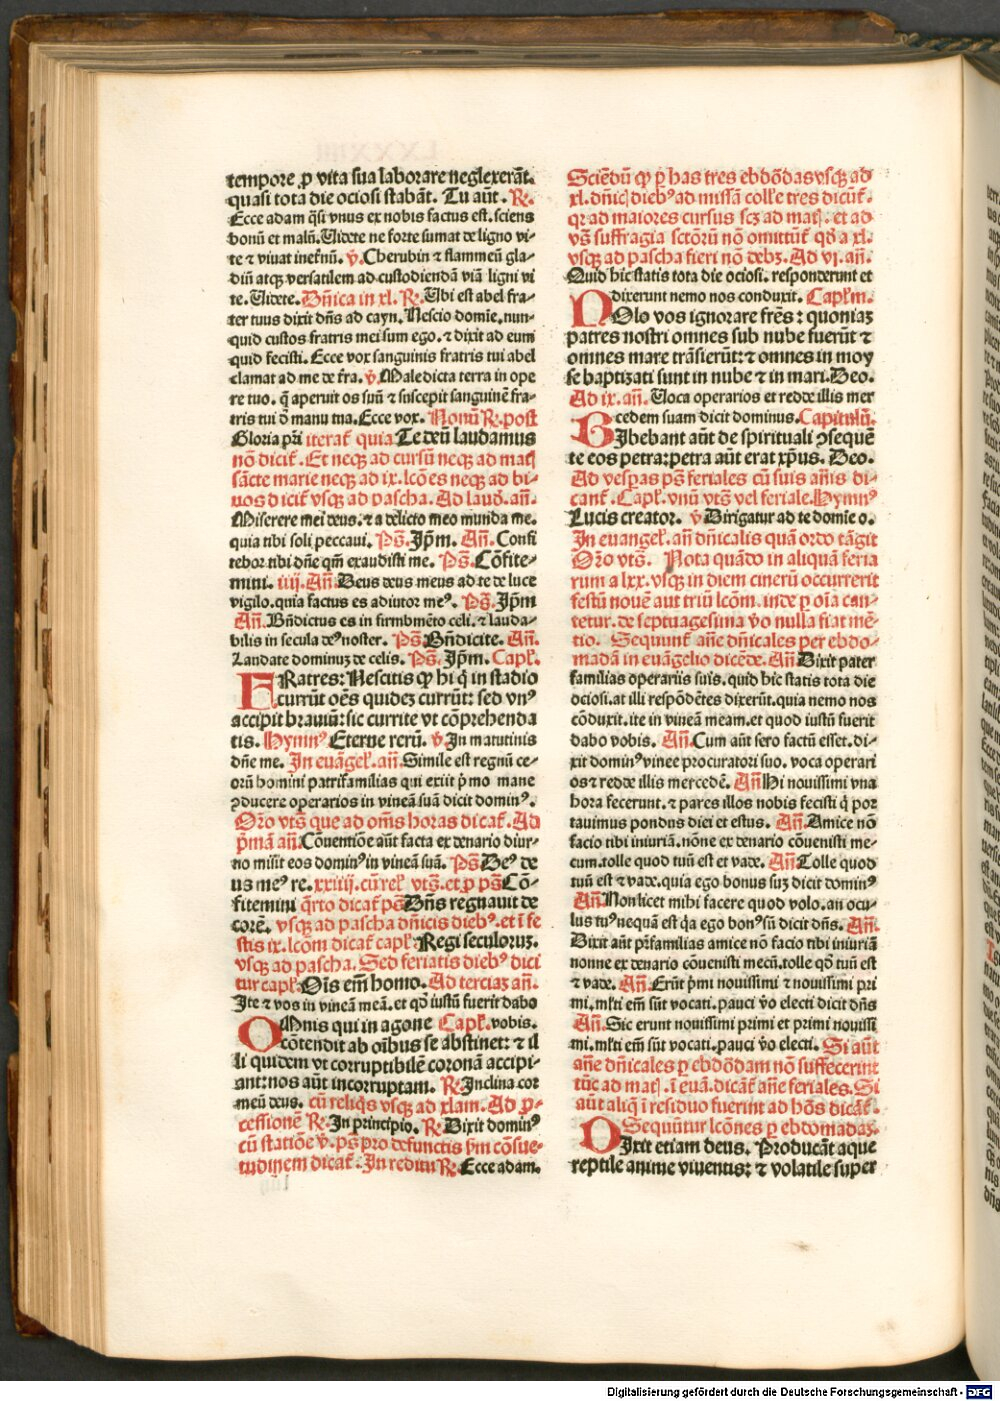 tempore ꝓ vita sua laborare neglexerāt.
quasi tota die ociosi stabāt. Tu aūt. ℟.
Ecce adam q̄si vnus ex nobis factus est. sciens
bonū et malū. Videte ne forte sumat de ligno vi-
te ⁊ viuat ineternū. ℣. Cherubin ⁊ flammeū gla-
diū atqꝫ versatilem ad custodiendā viā ligni vi
te. Videte. Dn̄ica in xl. ℟. Ubi est abel fra-
ter tuus dixit dn̄s ad cayn. Nescio domīe. nun-
quid custos fratris mei sum ego. ⁊ dixit ad eum
quid fecisti. Ecce vox sanguinis fratris tui abel
clamat ad me de t̄ra. ℣. Maledicta terra in ope
re tuo. q̄ aperuit os suū ⁊ suscepit sanguinē fra-
tris tui ō manu tua. Ecce vox. Nonū ℟. post
Gloria pr̄i iterat̄ quia Te deū laudamus
nō dicit̄. Et neqꝫ ad cursū neqꝫ ad mat̄
sācte marie neqꝫ ad ix. lcōes neqꝫ ad bi-
uos dicit̄ vsqꝫ ad pascha. Ad laud. an̄.
Miserere mei deus. ⁊ a delicto meo munda me.
quia tibi soli peccaui. Ps̄. Ip̄m. An̄. Confi
tebor tibi dn̄e qm̄ exaudisti me. Ps̄. Cōfite-
mini. iiij. An̄. Deus deus meus ad te de luce
vigilo. quia factus es adiutor meꝰ. Ps̄. Ip̄m
An̄. Bn̄dictus es in firmamēto celi. ⁊ lauda-
bilis in secula deꝰ noster. Ps̄ Bn̄dicite. An̄.
Laudate dominuꝫ de celis. Ps̄. Ip̄m. Capl̄.
FRatres: Nescitis ꝙ hi q̄ in stadio
currūt oēs quideꝫ currūt: sed vnꝰ
accipit brauiū: sic currite vt cōprehenda
tis. Hymnꝰ Eterne rerū. ℣. In matutinis
dn̄e me. In euāgel̄. an̄. Simile est regnū ce-
orū homini patrifamilias qui exiit p̄mo mane
ꝯducere operarios in vineā suā dicit dominꝰ.
Or̄o vts̄ que ad om̄s horas dicat̄. Ad
p̄mā an̄. Cōuentiōe aūt facta ex denario diur-
no misit eos dominꝰ in vineā suā. Ps̄ Deꝰ de
us meꝰ re. xxiiij. cū rel̄ vts̄. et ꝓ ps̄ Cō-
fitemini q̄rto dicat̄ ps̄ Dn̄s regnauit de
corē. vsqꝫ ad pascha dn̄icis diebꝰ. et ī fe
stis ix. lcōm dicat̄ capl̄. Regi seculoruꝫ.
vsqꝫ ad pascha. Sed feriatis diebꝰ dici
tur capl̄. Oīs em̄ homo. Ad terciaꝫ an̄.
Ite ⁊ vos in vineā meā. et qd̄ iustū fuerit dabo
OMnis qui in agone Capl̄. vobis.
cōtendit ab oībus se abstinet: ⁊ il
li quidem vt corruptibilē coronā accipi-
ant: nos aūt incorruptam. ℟. Inclina cor
meū deus. cū reliq̄s vsqꝫ ad xlam. Ad ꝓ-
cessionē ℟. In principio. ℟. Dixit dominꝰ
cū statiōe ℣. ps̄ pro defunctis s̄m cōsue-
tudinem dicat̄. In reditu ℟. Ecce adam.
Sciēdū ꝙ ꝑ has tres ebdōdas vsqꝫ ad
xl. dn̄ic̄ diebꝰ ad missā coll̄e tres dicūt̄.
qꝛ ad maiores cursus scꝫ ad mat̄. et ad
vs̄ suffragia sctōrū nō omittūt̄ qd̄ a xl.
vsqꝫ ad pascha fieri nō debꝫ. Ad vi. an̄.
Quid hic statis tota die ociosi. responderunt et
dixerunt nemo nos conduxit. Capl̄m.
NOlo vos ignorare fr̄es: quoniaꝫ
patres nostri omnes sub nube fuerūt ⁊
omnes mare trāsierūt: ⁊ omnes in moy
se baptizati sunt in nube ⁊ in mari. Deo.
Ad ix. an̄. Voca operarios et redde illis mer
cedem suam dicit dominus. Capitulū.
BIbebant aūt de spirituali ꝯsequē
te eos petra: petra aūt erat xp̄us. Deo.
Ad vesꝑas ps̄ feriales cū suis an̄is di-
cant̄. Capl̄. vnū vts̄ vel feriale. Hymnꝰ
Lucis creator. ℣ Dirigatur ad te domīe o.
In euangel̄. an̄ dn̄icalis quā ordo tāgit
Or̄o vts̄. Nota quādo in aliquā feria
rum a lxx. vsqꝫ in diem cinerū occurrerit
festū nouē aut triū lcōm. inde ꝑ oīa can-
tetur. de septuagesima v̄o nulla fiat mē-
tio. Sequunt̄ an̄e dn̄icales per ebdo-
madā in euāgelio dicēde. An̄ Dixit pater
familias operariis suis. quid hic statis tota die
ociosi. at illi respōdētes dixerūt. quia nemo nos
cōduxit. ite in vineā meam. et quod iustū fuerit
dabo vobis. An̄. Cum aūt sero factū esset. di-
xit dominꝰ vinee procuratori suo. voca operari
os ⁊ redde illis mercedē. An̄ Hi nouissimi vna
hora fecerunt. ⁊ pares illos nobis fecisti q̄ por
tauimus pondus diei et estus. An̄. Amice nō
facio tibi iniuriā. nōne ex denario cōuenisti me-
cum. tolle quod tuū est et vade. An̄ Tolle quod
tuū est ⁊ vade. quia ego bonus suꝫ dicit dominꝰ
An̄ Non licet mihi facere quod volo. an ocu-
lus tuꝰ nequā est q̄a ego bonꝰ sū dicit dn̄s. An̄.
Dixit aūt pr̄familias amice nō facio tibi iniuriā
nonne ex denario cōuenisti mecū. tolle qd̄ tuū est
⁊ vade. An̄. Erūt p̄mi nouissimi ⁊ nouissimi pri
mi. ml̄ti em̄ sūt vocati. pauci v̄o electi dicit dn̄s
An̄. Sic erunt nouissimi primi et primi nouissi
mi. ml̄ti em̄ sūt vocati. pauci v̄o electi. Si aūt
an̄e dn̄icales ꝑ ebdōdam nō suffecerint
tūc ad mat̄. ī euā. dicāt̄ an̄e feriales. Si
aūt aliq̄ ī residuo fuerint ad hōs dicāt̄.
Sequūtur lcōnes ꝑ ebdomadaꝫ.
DIxit etiam deus. Producāt aque
reptile anime viuentis: ⁊ volatile super
Digitalisierung gefördert durch die Deutsche Forschungsgemeinschaft - DFG